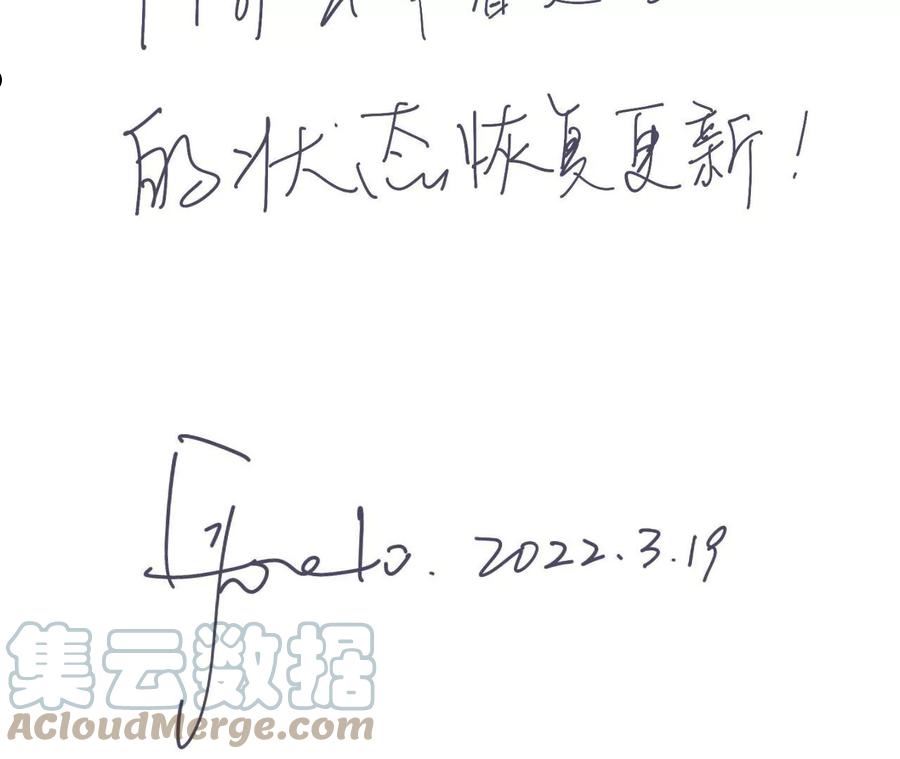 的状态恢复更新！
2022.3.19
集云数据
ACloudMerge.com